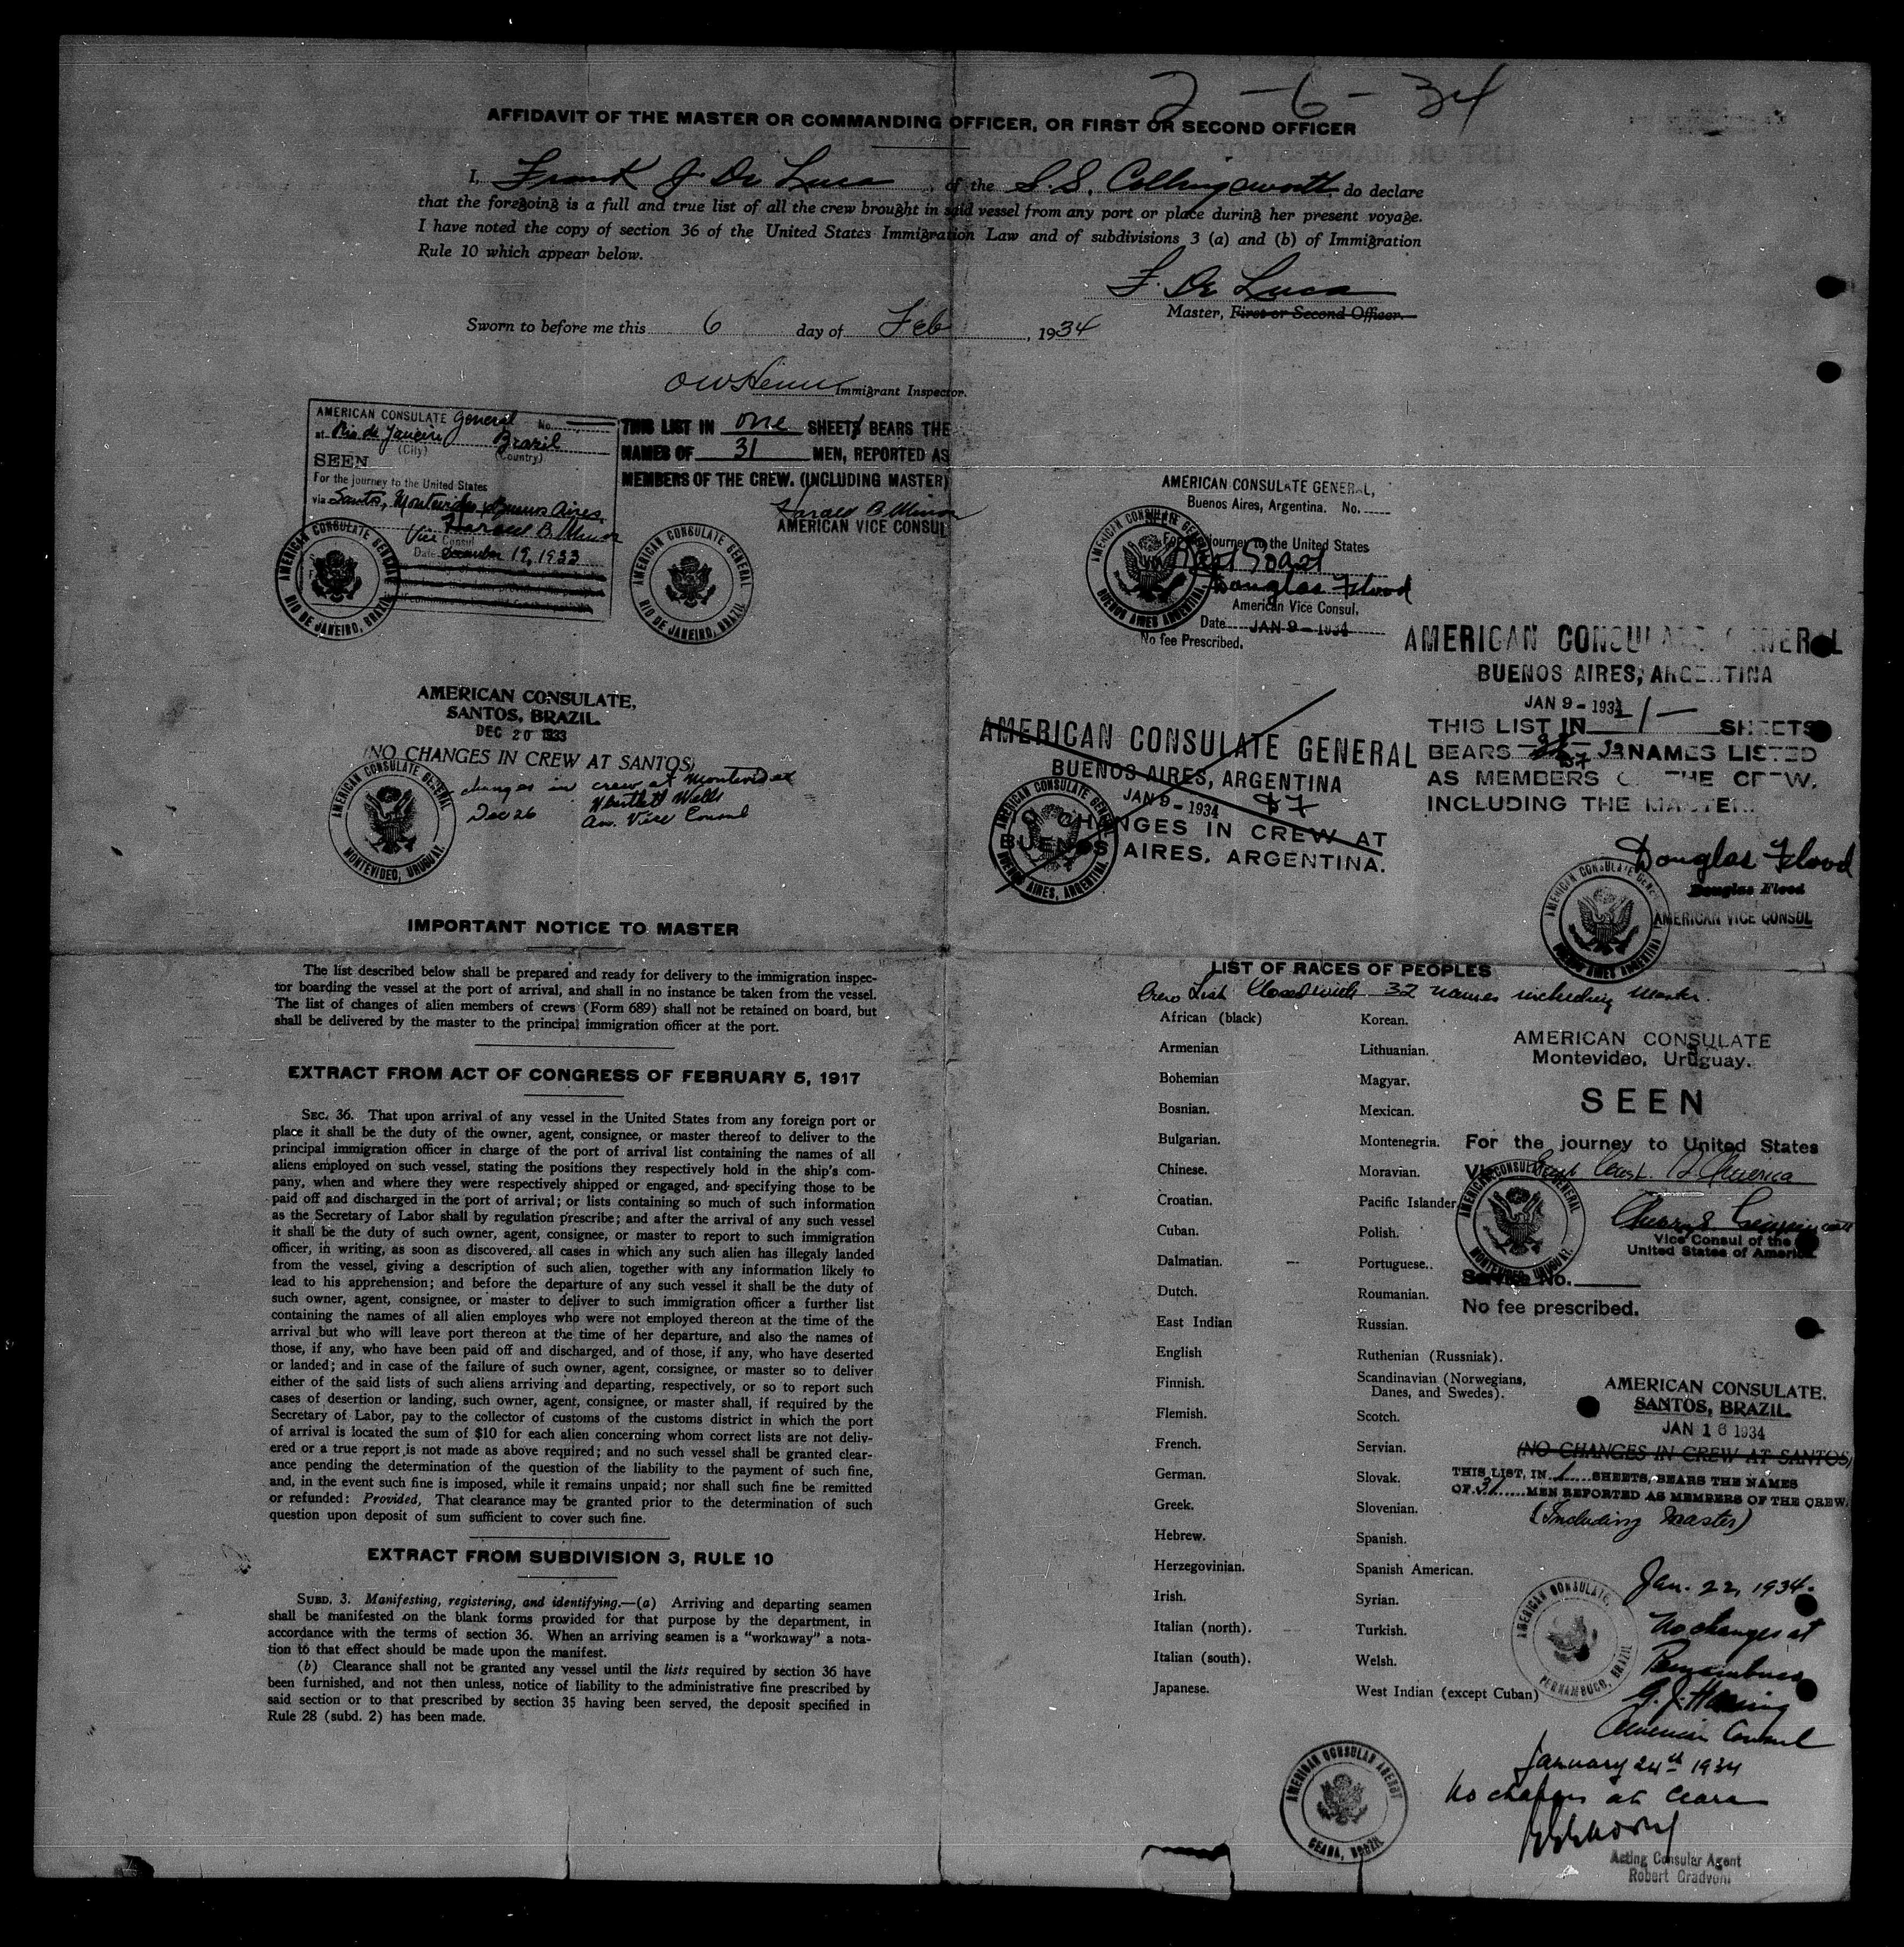 2-6-34
AFFIDAVIT OF THE MASTER OR COMMANDING OFFICER, OR FIRST OR SECOND OFFICER
I, Frank J. De Luca of the S.S. Collingsworth, do declare
that the foregoing is a full and true list of all the crew brought in said vessel from any port or place during her present voyage.
I have noted the copy of section 36 of the United States Immigration Law and of subdivisions 3 (a) and (b) of Immigration
Rule 10 which appear below.
F. De Luca
Master, First or Second Officer.
Sworn to before me this 6 day of Feb, 1934
Immigrant Inspector.
AMERICAN CONSULATE General No.
at Rio de Janeiro Brazil
(City) (Country)
SEEN
For the journey to the United States
via Santos, Montevideo & Buenos Aires
Harold B. Minor
Vice Consul
Date December 19, 1933
AMERICAN CONSULATE GENERAL
RIO DE JANEIRO, BRAZIL
THIS LIST IN one SHEETS BEARS THE
NAMES OF 31 MEN, REPORTED AS
MEMBERS OF THE CREW. (INCLUDING MASTER)
Harold B. Minor
AMERICAN VICE CONSUL
AMERICAN CONSULATE GENERAL
RIO DE JANEIRO, BRAZIL
AMERICAN CONSULATE GENERAL,
Buenos Aires, Argentina. No.
SEEN
For the journey to the United States
Douglas Flood
American Vice Consul.
Date JAN 9 - 1934
No fee Prescribed.
AMERICAN CONSULATE GENERAL
BUENOS AIRES ARGENTINA
AMERICAN CONSULATE GENERAL
BUENOS AIRES, ARGENTINA
JAN 9 - 1934
THIS LIST IN 1 SHEETS
BEARS 32 NAMES LISTED
AS MEMBERS OF THE CREW.
INCLUDING THE MASTER.
Douglas Flood
Douglas Flood
AMERICAN VICE CONSUL
AMERICAN CONSULATE GENERAL
BUENOS AIRES ARGENTINA
AMERICAN CONSULATE,
SANTOS, BRAZIL.
DEC 20 1933
(NO CHANGES IN CREW AT SANTOS)
changes in crew at Montevideo
Dec 26 Whartlett Wells
Am. Vice Consul
AMERICAN CONSULATE GENERAL
MONTEVIDEO, URUGUAY.
AMERICAN CONSULATE GENERAL
BUENOS AIRES, ARGENTINA
JAN 9 - 1934 DF
CHANGES IN CREW AT
BUENOS AIRES, ARGENTINA.
AMERICAN CONSULATE GENERAL
BUENOS AIRES, ARGENTINA
IMPORTANT NOTICE TO MASTER
The list described below shall be prepared and ready for delivery to the immigration inspec-
tor boarding the vessel at the port of arrival, and shall in no instance be taken from the vessel.
The list of changes of alien members of crews (Form 689) shall not be retained on board, but
shall be delivered by the master to the principal immigration officer at the port.
EXTRACT FROM ACT OF CONGRESS OF FEBRUARY 5, 1917
SEC. 36. That upon arrival of any vessel in the United States from any foreign port or
place it shall be the duty of the owner, agent, consignee, or master thereof to deliver to the
principal immigration officer in charge of the port of arrival list containing the names of all
aliens employed on such vessel, stating the positions they respectively hold in the ship's com-
pany, when and where they were respectively shipped or engaged, and specifying those to be
paid off and discharged in the port of arrival; or lists containing so much of such information
as the Secretary of Labor shall by regulation prescribe; and after the arrival of any such vessel
it shall be the duty of such owner, agent, consignee, or master to report to such immigration
officer, in writing, as soon as discovered, all cases in which any such alien has illegally landed
from the vessel, giving a description of such alien, together with any information likely to
lead to his apprehension; and before the departure of any such vessel it shall be the duty of
such owner, agent, consignee, or master to deliver to such immigration officer a further list
containing the names of all alien employes who were not employed thereon at the time of the
arrival but who will leave port thereon at the time of her departure, and also the names of
those, if any, who have been paid off and discharged, and of those, if any, who have deserted
or landed; and in case of the failure of such owner, agent, consignee, or master so to deliver
either of the said lists of such aliens arriving and departing, respectively, or so to report such
cases of desertion or landing, such owner, agent, consignee, or master shall, if required by the
Secretary of Labor, pay to the collector of customs of the customs district in which the port
of arrival is located the sum of $10 for each alien concerning whom correct lists are not deliv-
ered or a true report is not made as above required; and no such vessel shall be granted clear-
ance pending the determination of the question of the liability to the payment of such fine,
and, in the event such fine is imposed, while it remains unpaid; nor shall such fine be remitted
or refunded: Provided, That clearance may be granted prior to the determination of such
question upon deposit of sum sufficient to cover such fine.
EXTRACT FROM SUBDIVISION 3, RULE 10
SUBD. 3. Manifesting, registering, and identifying.—(a) Arriving and departing seamen
shall be manifested on the blank forms provided for that purpose by the department, in
accordance with the terms of section 36. When an arriving seamen is a "workaway" a nota-
tion to that effect should be made upon the manifest.
(b) Clearance shall not be granted any vessel until the lists required by section 36 have
been furnished, and not then unless, notice of liability to the administrative fine prescribed by
said section or to that prescribed by section 35 having been served, the deposit specified in
Rule 28 (subd. 2) has been made.
LIST OF RACES OF PEOPLES
Crew List Closed with 32 names including Master.
African (black) Korean.
Armenian Lithuanian.
Bohemian Magyar.
Bosnian. Mexican.
Bulgarian. Montenegrin.
Chinese. Moravian.
Croatian. Pacific Islander
Cuban. Polish.
Dalmatian. Portuguese.
Dutch. Roumanian.
East Indian Russian.
English Ruthenian (Russniak).
Finnish. Scandinavian (Norwegians,
Danes, and Swedes).
Flemish. Scotch.
French. Servian.
German. Slovak.
Greek. Slovenian.
Hebrew. Spanish.
Herzegovinian. Spanish American.
Irish. Syrian.
Italian (north). Turkish.
Italian (south). Welsh.
Japanese. West Indian (except Cuban)
AMERICAN CONSULATE
Montevideo, Uruguay.
SEEN
For the journey to United States
Via East Coast S. America
Vice Consul of the
United States of America.
AMERICAN CONSULATE GENERAL
MONTEVIDEO, URUGUAY.
Service No.
No fee prescribed.
AMERICAN CONSULATE.
SANTOS, BRAZIL.
JAN 16 1934
(NO CHANGES IN CREW AT SANTOS)
THIS LIST, IN 1 SHEETS, BEARS THE NAMES
OF 31 MEN REPORTED AS MEMBERS OF THE CREW.
(Including Master)
AMERICAN CONSULATE,
PERNAMBUCO, BRAZIL
Jan. 22, 1934.
No changes at
Pernambuco
American Consul
January 24th 1934
No changes at Ceara
Acting Consular Agent
Robert Gradvohl
AMERICAN CONSULAR AGENCY
CEARA, BRAZIL